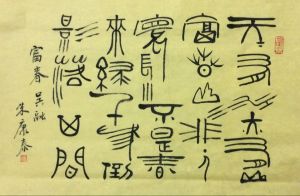 天下有水亦有
山富春山水非人
寰長川不是春
來綠千峰倒
影落其間
富春 吳融
朱康泰